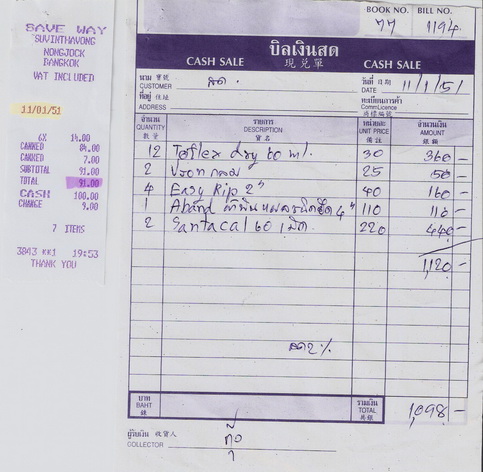 SAVE WAY
SUVINTHAVONG
NONGJOCK
BANGKOK
VAT INCLUDED
11/01/51
6X 14.00
CANNED 84.00
CANNED 7.00
SUBTOTAL 91.00
TOTAL 91.00
CASH 100.00
CHANGE 9.00
7 ITEMS
3843 ##1 19:53
THANK YOU
BOOK NO. BILL NO.
77 1194
บิลเงินสด
CASH SALE 现兑單 CASH SALE
นาม 寶號
CUSTOMER สด.
วันที่ 日期
DATE 11/1/51
ที่อยู่ 住址
ADDRESS
ทะเบียนการค้า
CommLicence
商標編號
จำนวน QUANTITY 數量
รายการ DESCRIPTION 貨名
หน่วยละ UNIT PRICE 備註
จำนวนเงิน AMOUNT 銀額
12 Toflex dry 60 ml. 30 360 -
2 25 50 -
4 Easy Rip 2" 40 160 -
1 4" 110 110 -
2 Santacal 60 เม็ด 220 440 -
1,120 -
ลด 2%
บาท BAHT 銖
รวมเงิน TOTAL 共銀 1,098 -
ผู้รับเงิน 收貨人
COLLECTOR